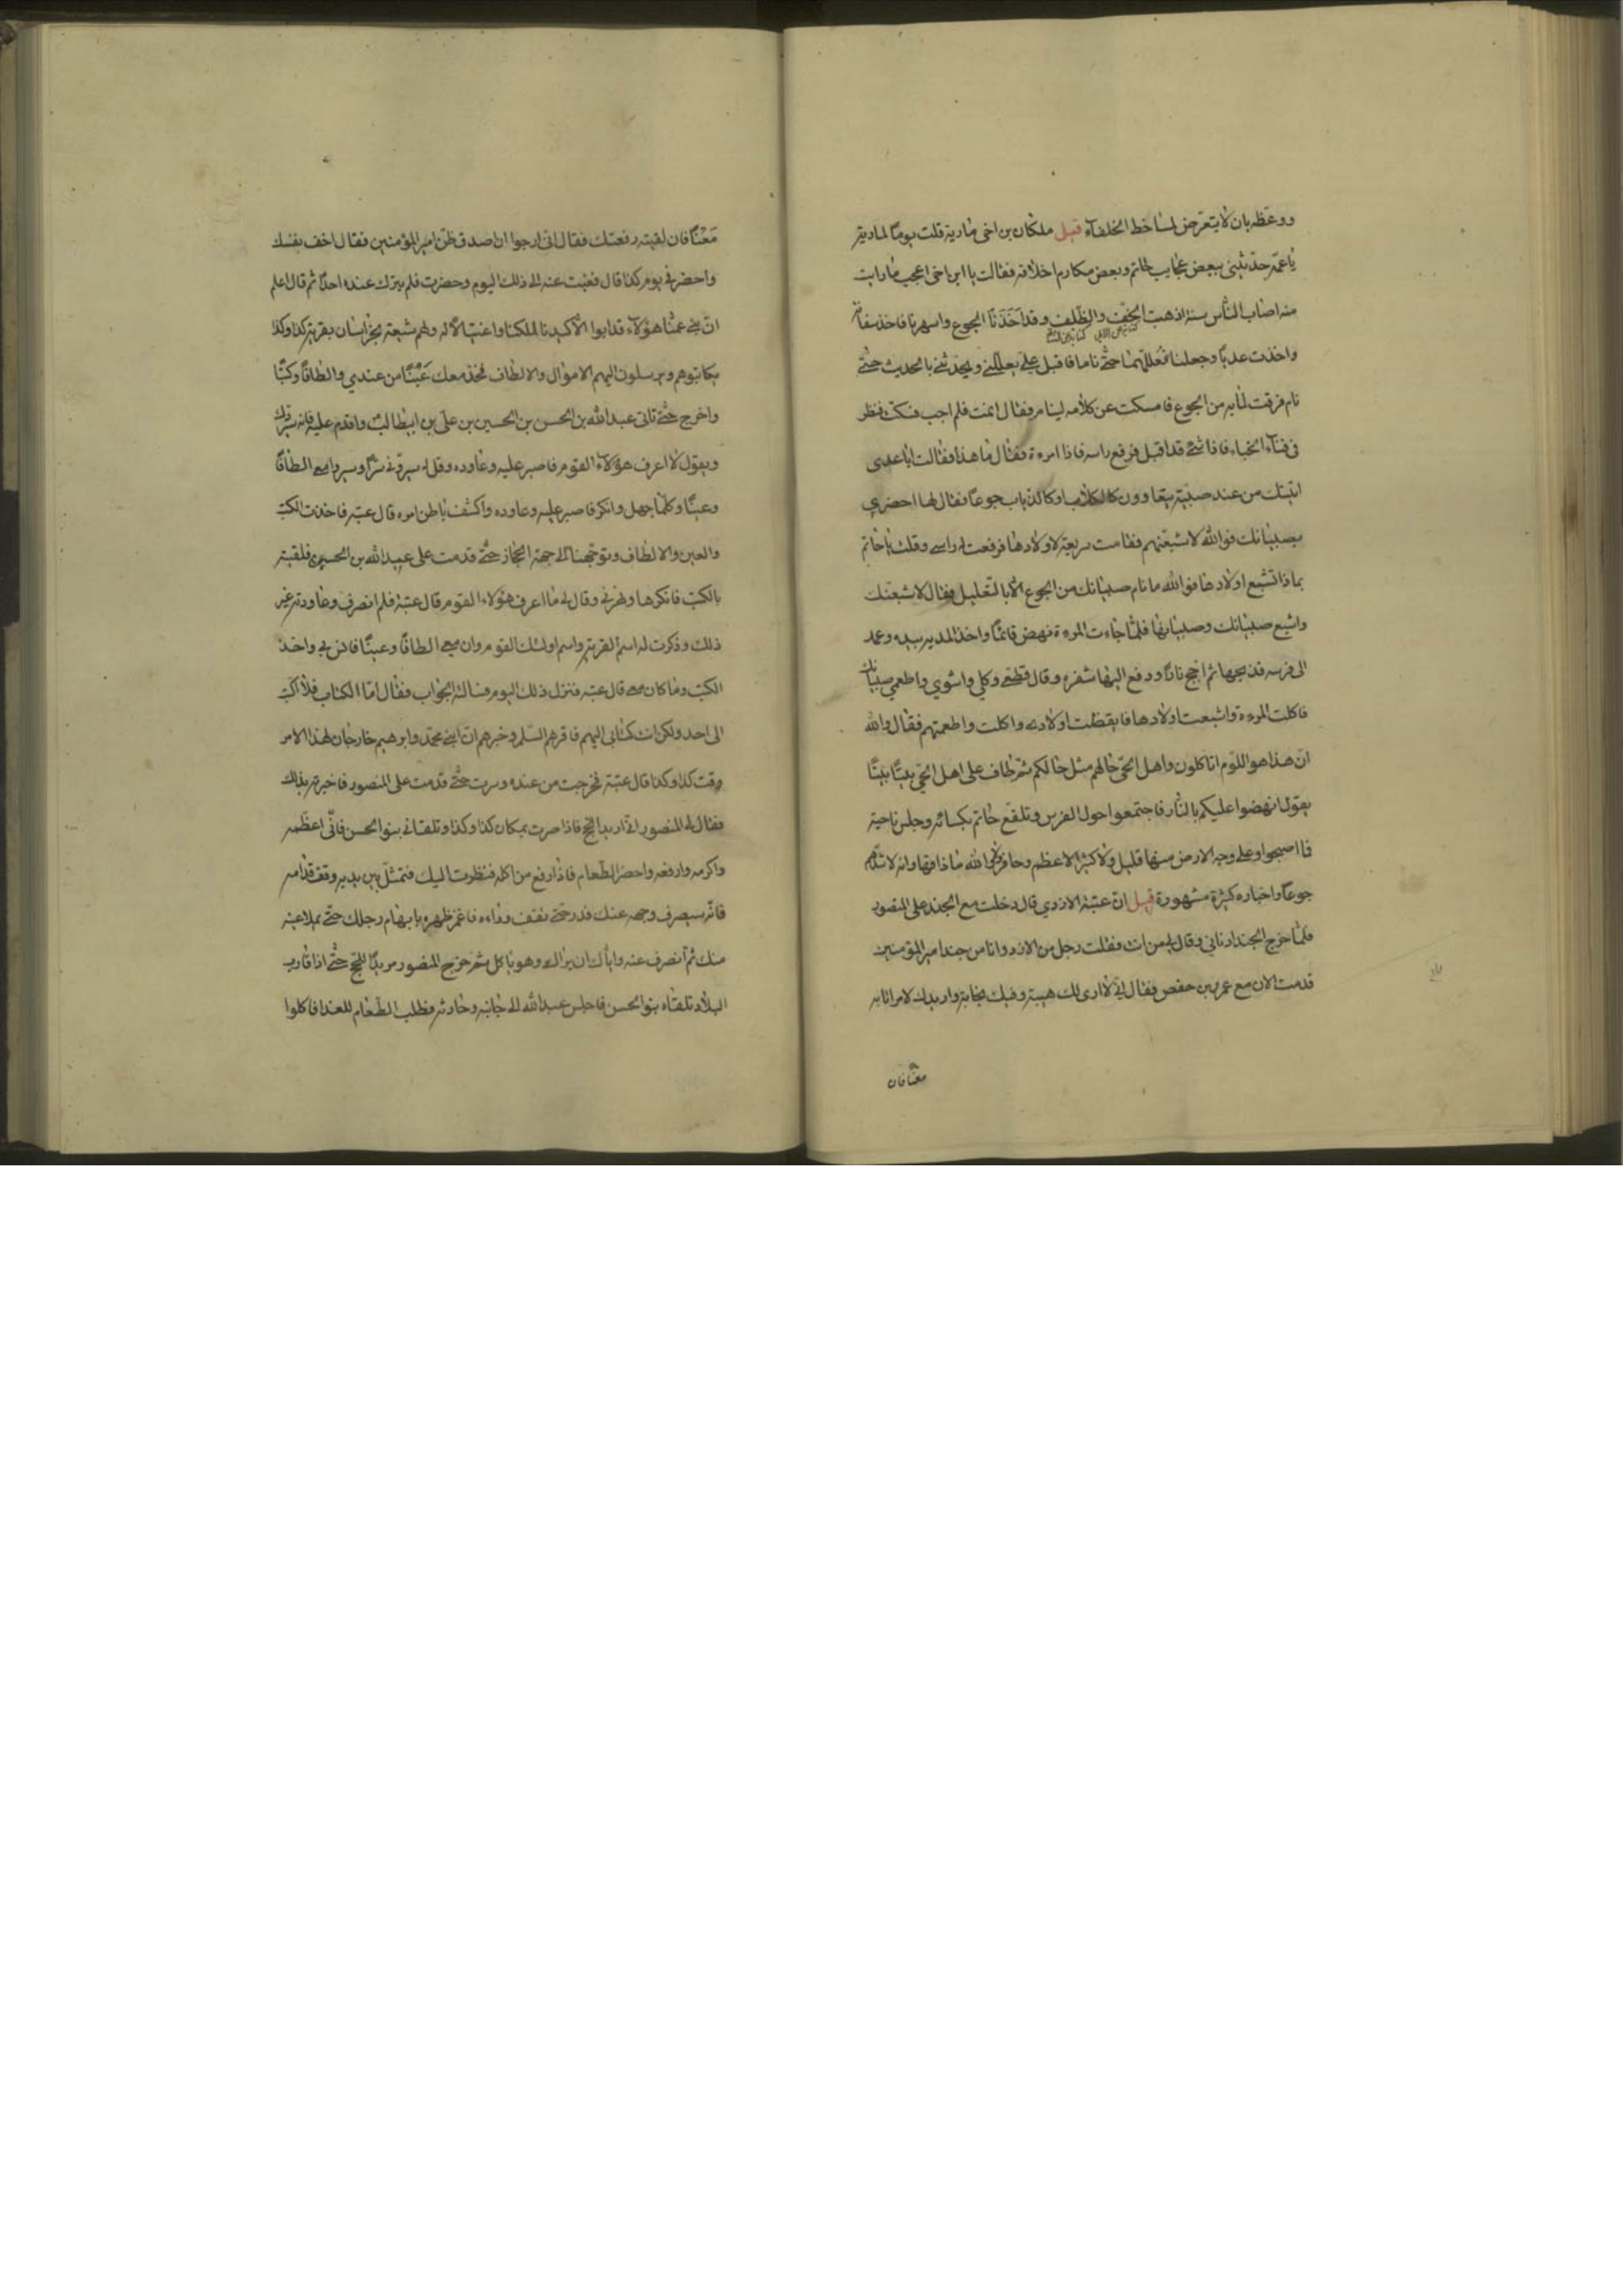 ووعظه بان لا يتعرض لمساخط الخلفاء قيل ملكان بن اخى مادية قلت يوما لمادية
يا عمة حدثينى ببعض عجايب حاتم وبعض مكارم اخلاقه فقالت يا ابن اخى اعجب ما رايت
منه اصاب الناس سنة اذهبت الخف والظلف وقد اخذنا الجوع واسهرنا فاخذ سفانة
واخذت عديا وجعلنا نعللهما حتى ناما فاقبل على يعللنى ويحدثنى بالحديث حتى
نام فرقت لما به من الجوع فامسكت عن كلامه لينام فقال انمت فلم اجب فسكت فنظر
فى فناء الخباء فاذا شئ قد اقبل فرفع راسه فاذا امرءة فقال ما هذا فقالت ابا عدى
اتيتك من عند صبية يتعاوون كالكلاب او كالذياب جوعا فقال لها احضرى
بصبيانك فوالله لاشبعنهم فقامت سريعة لاولادها فرفعت له راسى وقلت يا حاتم
بماذا تشبع اولادها فوالله ما نام صبيانك من الجوع الا بالتعليل فقال لاشبعنك
واشبع صبيانك وصبيانها فلما جاءت المرءة نهض قائما واخذ المدية بيده وعمد
الى فرسه فذبحها ثم اجج نارا ودفع اليها شفرة وقال قطعى وكلى واشوى واطعمى صبيانك
فاكلت المرءة واشبعت اولادها فايقظت اولادى واكلت واطعمتهم فقال والله
ان هذا هو اللؤم اتاكلون واهل الحى حالهم مثل حالكم ثم طاف على اهل الحى بيتا بيتا
يقول انهضوا عليكم بالنار فاجتمعوا حول الفرس وتلفع حاتم بكسائه وجلس ناحية
فما اصبحوا وعلى وجه الارض منها قليل ولا كثير الا عظم وحافر لا والله ما ذاقها وانه لاشدهم
جوعا واخباره كثيرة مشهورة قيل ان عتبة الازدى قال دخلت مع الجند على المنصور
فلما خرج الجند ادنانى وقال لى من انت فقلت رجل من الازد وانا من جند امير المؤمنين
قدمت الان مع عمر بن حفص فقال انى لا ارى لك هيبة وفيك نجابة واريدك لامر انا به
معنا فان
معنا فان لقيته رفعتك فقال انى ارجوا ان اصدق ظن امير المؤمنين فقال اخف نفسك
واحضر فى يوم كذا قال فغبت عنه الى ذلك اليوم وحضرت فلم يترك عنده احدا ثم قال اعلم
ان بنى عمنا هؤلاء قد ابوا الا كيدنا لملكنا واغتيالا له ولهم شيعة بخراسان بقرية كذا وكذا
يكاتبوهم ويرسلون اليهم الاموال والالطاف فخذ معك عينا من عندى والطافا وكتبا
واخرج حتى تاتى عبدالله بن الحسن بن الحسين بن على بن ابيطالب واقدم عليه فانه سيردك
ويقول لا اعرف هؤلاء القوم فاصبر عليه وعاوده وقل له سيرونى سرا وسيروا معى الطافا
وعينا وكلما جهل وانكر فاصبر عليه وعاوده واكشف باطن امره قال عتبه فاخذت الكتب
والعين والالطاف وتوجهنا الى جهة الحجاز حتى قدمت على عبدالله بن الحسين فلقيته
بالكتب فانكرها ونهرنى وقال لى ما اعرف هؤلاء القوم قال عتبة فلم انصرف وعاودته غير
ذلك وذكرت له اسم القرية واسم اولئك القوم وان معى الطافا وعينا فانس بى واخذ
الكتب وما كان معى قال عتبه فتركته ذلك اليوم وسالته الجواب فقال اما الكتاب فلا اكتب
الى احد ولكن انت كتابى اليهم فاقرهم السلم وخبرهم ان ابنى محمد وابرهيم خارجان لهذا الامر
وقت كذا وكذا قال عتبة فخرجت من عنده وسرت حتى قدمت على المنصور فاخبرته بذلك
فقال لى المنصور انى اريد الحج فاذا صرت بمكان كذا وكذا وتلقانى بنوا الحسن فانى اعظمه
واكرمه وارفعه واحضر الطعام فاذا رفع من اكله فنظرت اليك فتمثل بين يديه وقف قدامه
فانه سيصرف وجهه عنك فدر حتى تقف وراءه فاغمز ظهره بابهام رجلك حتى يملا عينه
منك ثم انصرف عنه واياك ان يراك وهو ياكل ثم خرج المنصور مريدا للحج حتى اذا قارب
البلاد تلقاه بنوا الحسن فاجلس عبدالله الى جانبه وحادثه فطلب الطعام للغدا فاكلوا